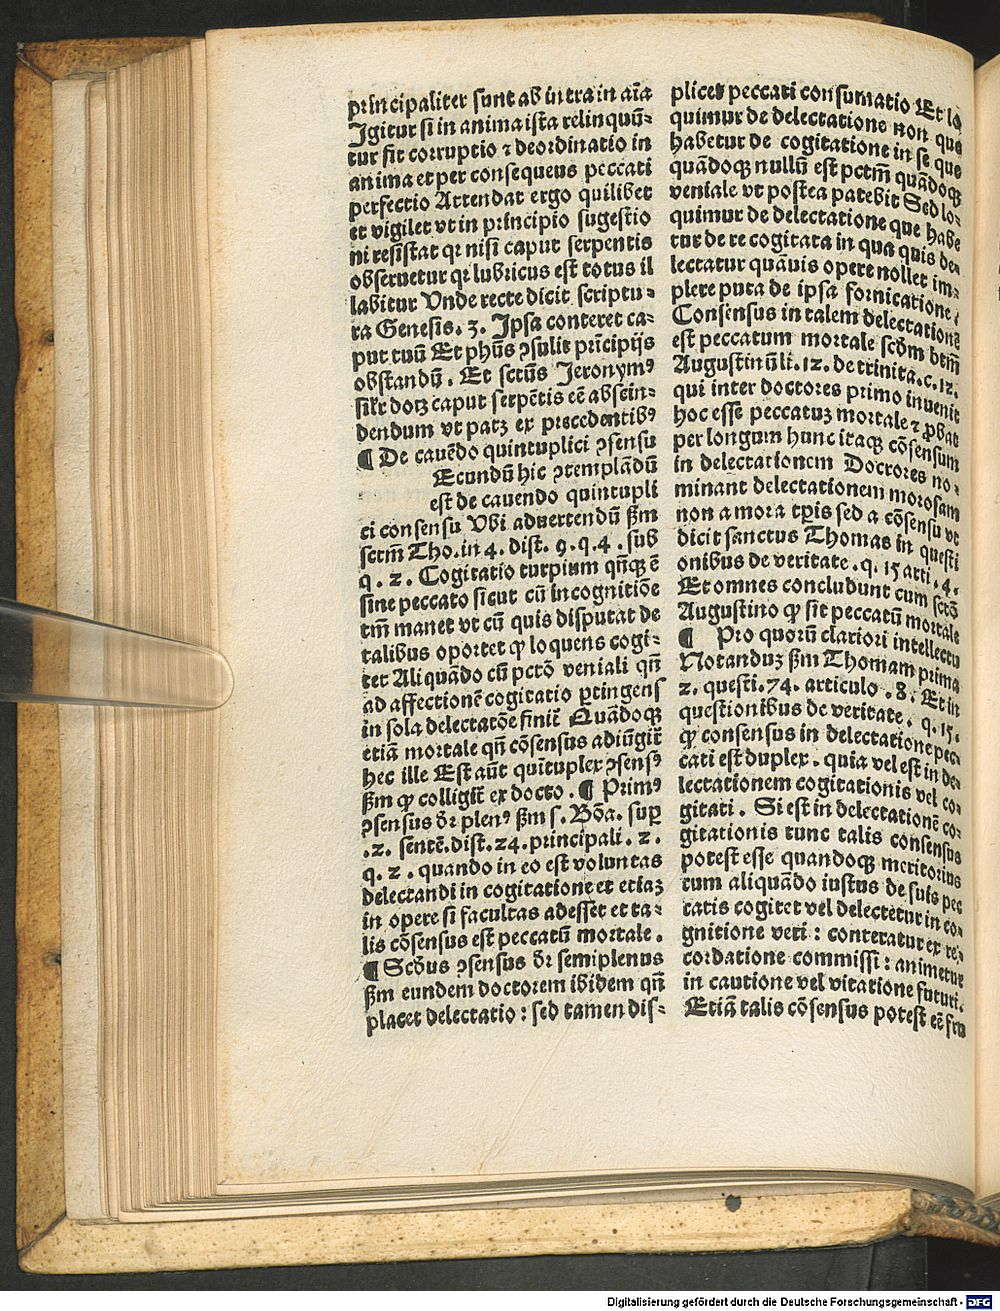 principaliter sunt ab intra in aīa
Igitur si in anima ista relinquū-
tur fit corruptio ⁊ deordinatio in
anima et per consequens peccati
perfectio Attendat ergo quilibet
et vigilet vt in principio sugestio
ni resistat qꝛ nisi caput serpentis
obseruetur qꝛ lubricus est totus il
labitur Vnde recte dicit scriptu-
ra Genesis. 3. Ipsa conteret ca-
put tuū Et phūs ꝯsulit prīcipijs
obstandū. Et sctūs Jeronymꝰ
silʳ docꝫ caput serpētis eē abscin-
dendum vt patꝫ ex precedentibꝰ
¶ De cauēdo quintuplici ꝯsensu
Ecundū hic ꝯtemplādū
est de cauendo quintupli
ci consensu Vbi aduertendū ẜm
sctm̄ Tho. in 4. dist. 9. q. 4. sub
q. 2. Cogitatio turpium qn̄qꝫ ē
sine peccato sicut cū in cognitiōe
tm̄ manet vt cū quis disputat de
talibus oportet ꝙ loquens cogi-
tet Aliquādo cū pctō veniali qn̄
ad affectionē cogitatio ꝑtingens
in sola delectatōe finit̄ Quādoqꝫ
etiā mortale qn̄ cōsensus adiūgit̄
hec ille Est aūt quītuplex ꝯsensꝰ
ẜm ꝙ colligit̄ ex docto. ¶ Primꝰ
ꝯsensus dr̄ plenꝰ ẜm s. Bōa. suꝑ
.2. sentē. dist. 24. principali. 2.
q. 2. quando in eo est voluntas
delectandi in cogitatione et etiaꝫ
in opere si facultas adesset et ta-
lis cōsensus est peccatū mortale.
¶ Scd̄us ꝯsensus dr̄ semiplenus
ẜm eundem doctorem ibidem qn̄
placet delectatio: sed tamen dis-
plicet peccati consumatio Et lo
quimur de delectatione non que
habetur de cogitatione in se que
quādoqꝫ nullū est pctm̄ quādoqꝫ
veniale vt postea patebit Sed lo-
quimur de delectatione que habe
tur de re cogitata in qua quis de-
lectatur quāuis opere nollet im-
plere puta de ipsa fornicatione.
Consensus in talem delectationē
est peccatum mortale scd̄m btm̄
Augustinū li. 12. de trinita. c. 12.
qui inter doctores primo inuenit
hoc esse peccatuꝫ mortale ⁊ ꝓbat
per longum hunc itaqꝫ cōsensum
in delectationem Doctores no-
minant delectationem morosam
non a mora tꝑis sed a cōsensu vt
dicit sanctus Thomas in questi
onibus de veritate. q. 15 arti. 4.
Et omnes concludunt cum sctō
Augustino ꝙ sit peccatū mortale
¶ Pro quorū clariori intellectu
Notanduꝫ ẜm Thomam prima
2. questi. 74. articulo. 8. Et in
questionibus de veritate. q. 15.
ꝙ consensus in delectatione pec-
cati est duplex. quia vel est in de-
lectationem cogitationis vel co-
gitati. Si est in delectationē co-
gitationis tunc talis consensus
potest esse quandoqꝫ meritorius
cum aliquādo iustus de suis pec
catis cogitet vel delectetur in co-
gnitione veri: conteratur ex re-
cordatione commissi: animetur
in cautione vel vitatione futuri.
Etiā talis cōsensus potest eē fru
Digitalisierung gefördert durch die Deutsche Forschungsgemeinschaft - DFG